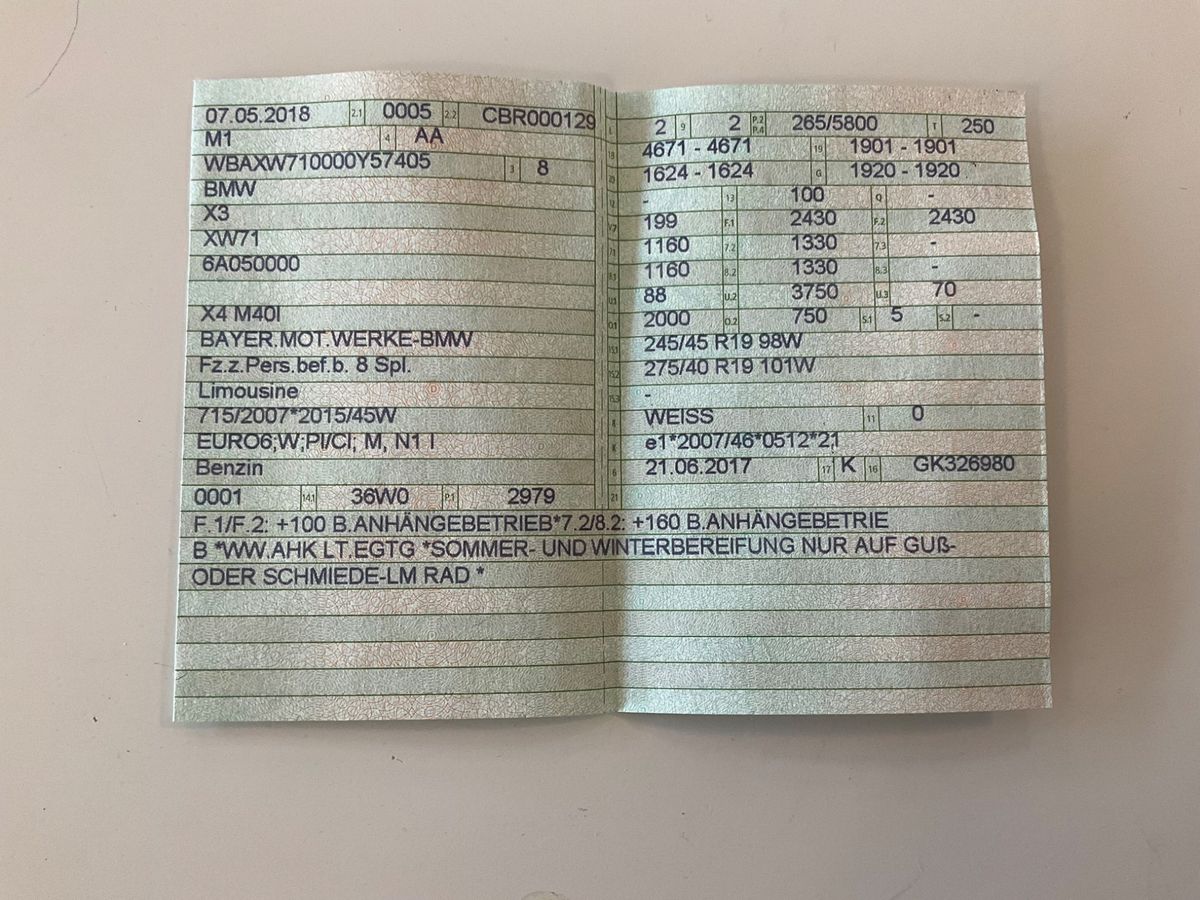 07.05.2018 2.1 0005 2.2 CBR000129
M1 4 AA
WBAXW710000Y57405 3 8
BMW
X3
XW71
6A050000
X4 M40I
BAYER.MOT.WERKE-BMW
Fz.z.Pers.bef.b. 8 Spl.
Limousine
715/2007*2015/45W
EURO6;W;PI/CI; M, N1 I
Benzin
0001 14.1 36W0 P.1 2979
L 2 9 2 P.2 P.4 265/5800 T 250
18 4671 - 4671 19 1901 - 1901
20 1624 - 1624 G 1920 - 1920
12 - 13 100 Q -
V.7 199 F.1 2430 F.2 2430
7.1 1160 7.2 1330 7.3 -
8.1 1160 8.2 1330 8.3 -
U.1 88 U.2 3750 U.3 70
O.1 2000 O.2 750 S.1 5 S.2 -
15.1 245/45 R19 98W
15.2 275/40 R19 101W
15.3 -
R WEISS 11 0
K e1*2007/46*0512*21
6 21.06.2017 17 K 16 GK326980
21
F.1/F.2: +100 B.ANHÄNGEBETRIEB*7.2/8.2: +160 B.ANHÄNGEBETRIE
B *WW.AHK LT.EGTG *SOMMER- UND WINTERBEREIFUNG NUR AUF GUß-
ODER SCHMIEDE-LM RAD *